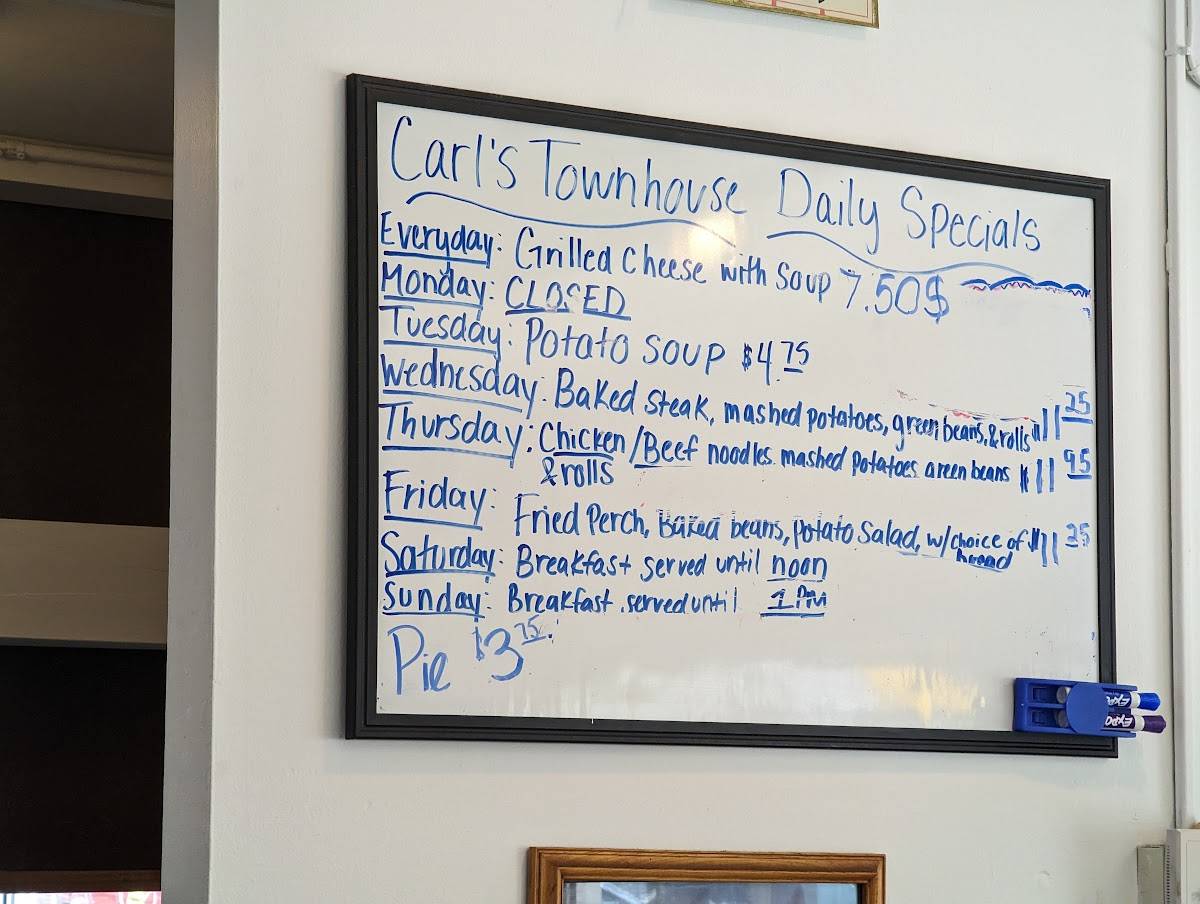 Carl's Townhouse Daily Specials
Everyday: Grilled Cheese with Soup 7.50$
Monday: CLOSED
Tuesday: Potato Soup $4.75
Wednesday: Baked steak, mashed potatoes, green beans, & rolls $11 25
Thursday: Chicken/Beef noodles mashed potatoes green beans $11 95
& rolls
Friday: Fried Perch, Baked beans, potato salad, w/choice of $11 25
bread
Saturday: Breakfast served until noon
Sunday: Breakfast served until 1 PM
Pie $3 75
EXPO
EXPO